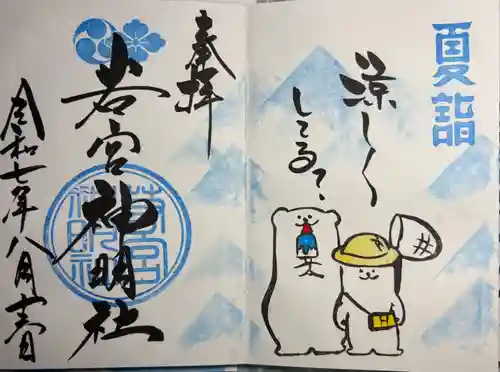 夏詣
涼しく
してる?
奉拝
若宮神明社
若宮
神明社
令和七年八月